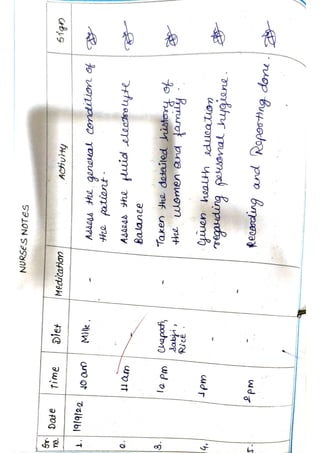 NURSES NOTES
Sr. no. Date Time Diet Medication Activity Sign
1. 19/9/22 10am Milk. - Assess the general condition of
the patient.
2. 11am - Assess the fluid electrolyte
Balance
3. 12 pm Chapati, - Taken the detailed history of
Sabji, the women and family.
Rice.
4. 1pm - - Given health education
regarding personal hygiene.
5. 2pm - - Recording and Reporting done.